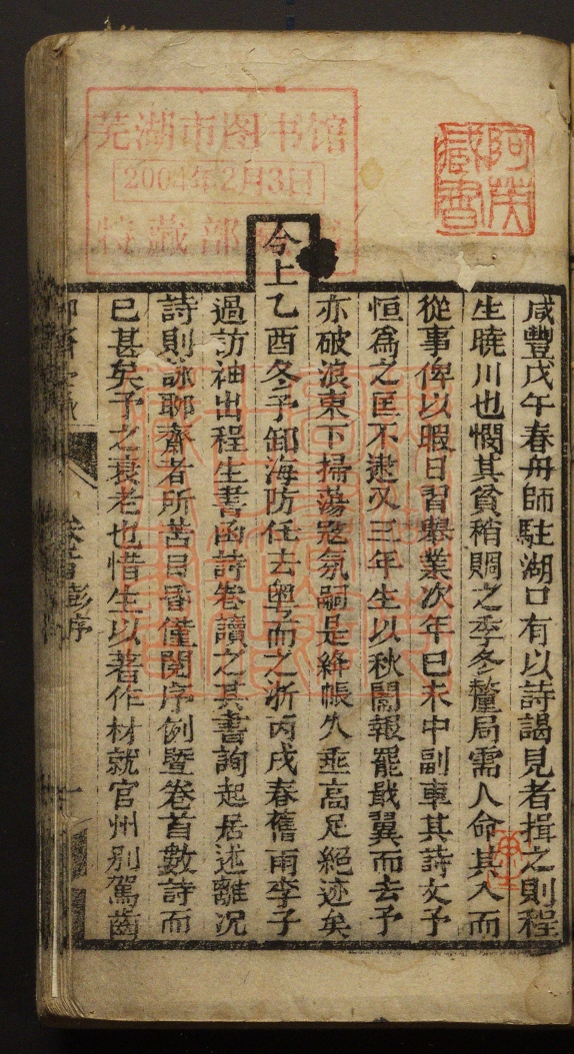 咸豐戊午春舟師駐湖口有以詩謁見者揖之則程
生曉川也憫其貧稍賙之季冬釐局需人命其入而
從事俾以暇日習舉業次年已未中副車其詩文予
恒爲之匡不逮又三年生以秋闈報罷戢翼而去予
亦破浪東下掃蕩寇氛嗣是絳帳久垂高足絕迹矣
今上乙酉冬予卸海防任去粵而之浙丙戌春舊雨李子
過訪袖出程生書函詩卷讀之其書詢起居述離况
詩則詠聊齋者所苦目昏僅閱序例暨卷首數詩而
已甚矣予之衰老也惜生以著作材就官州別駕齒
卷首彭序
一
芜湖市图书馆
2004年2月3日
特藏部
阿英
藏書